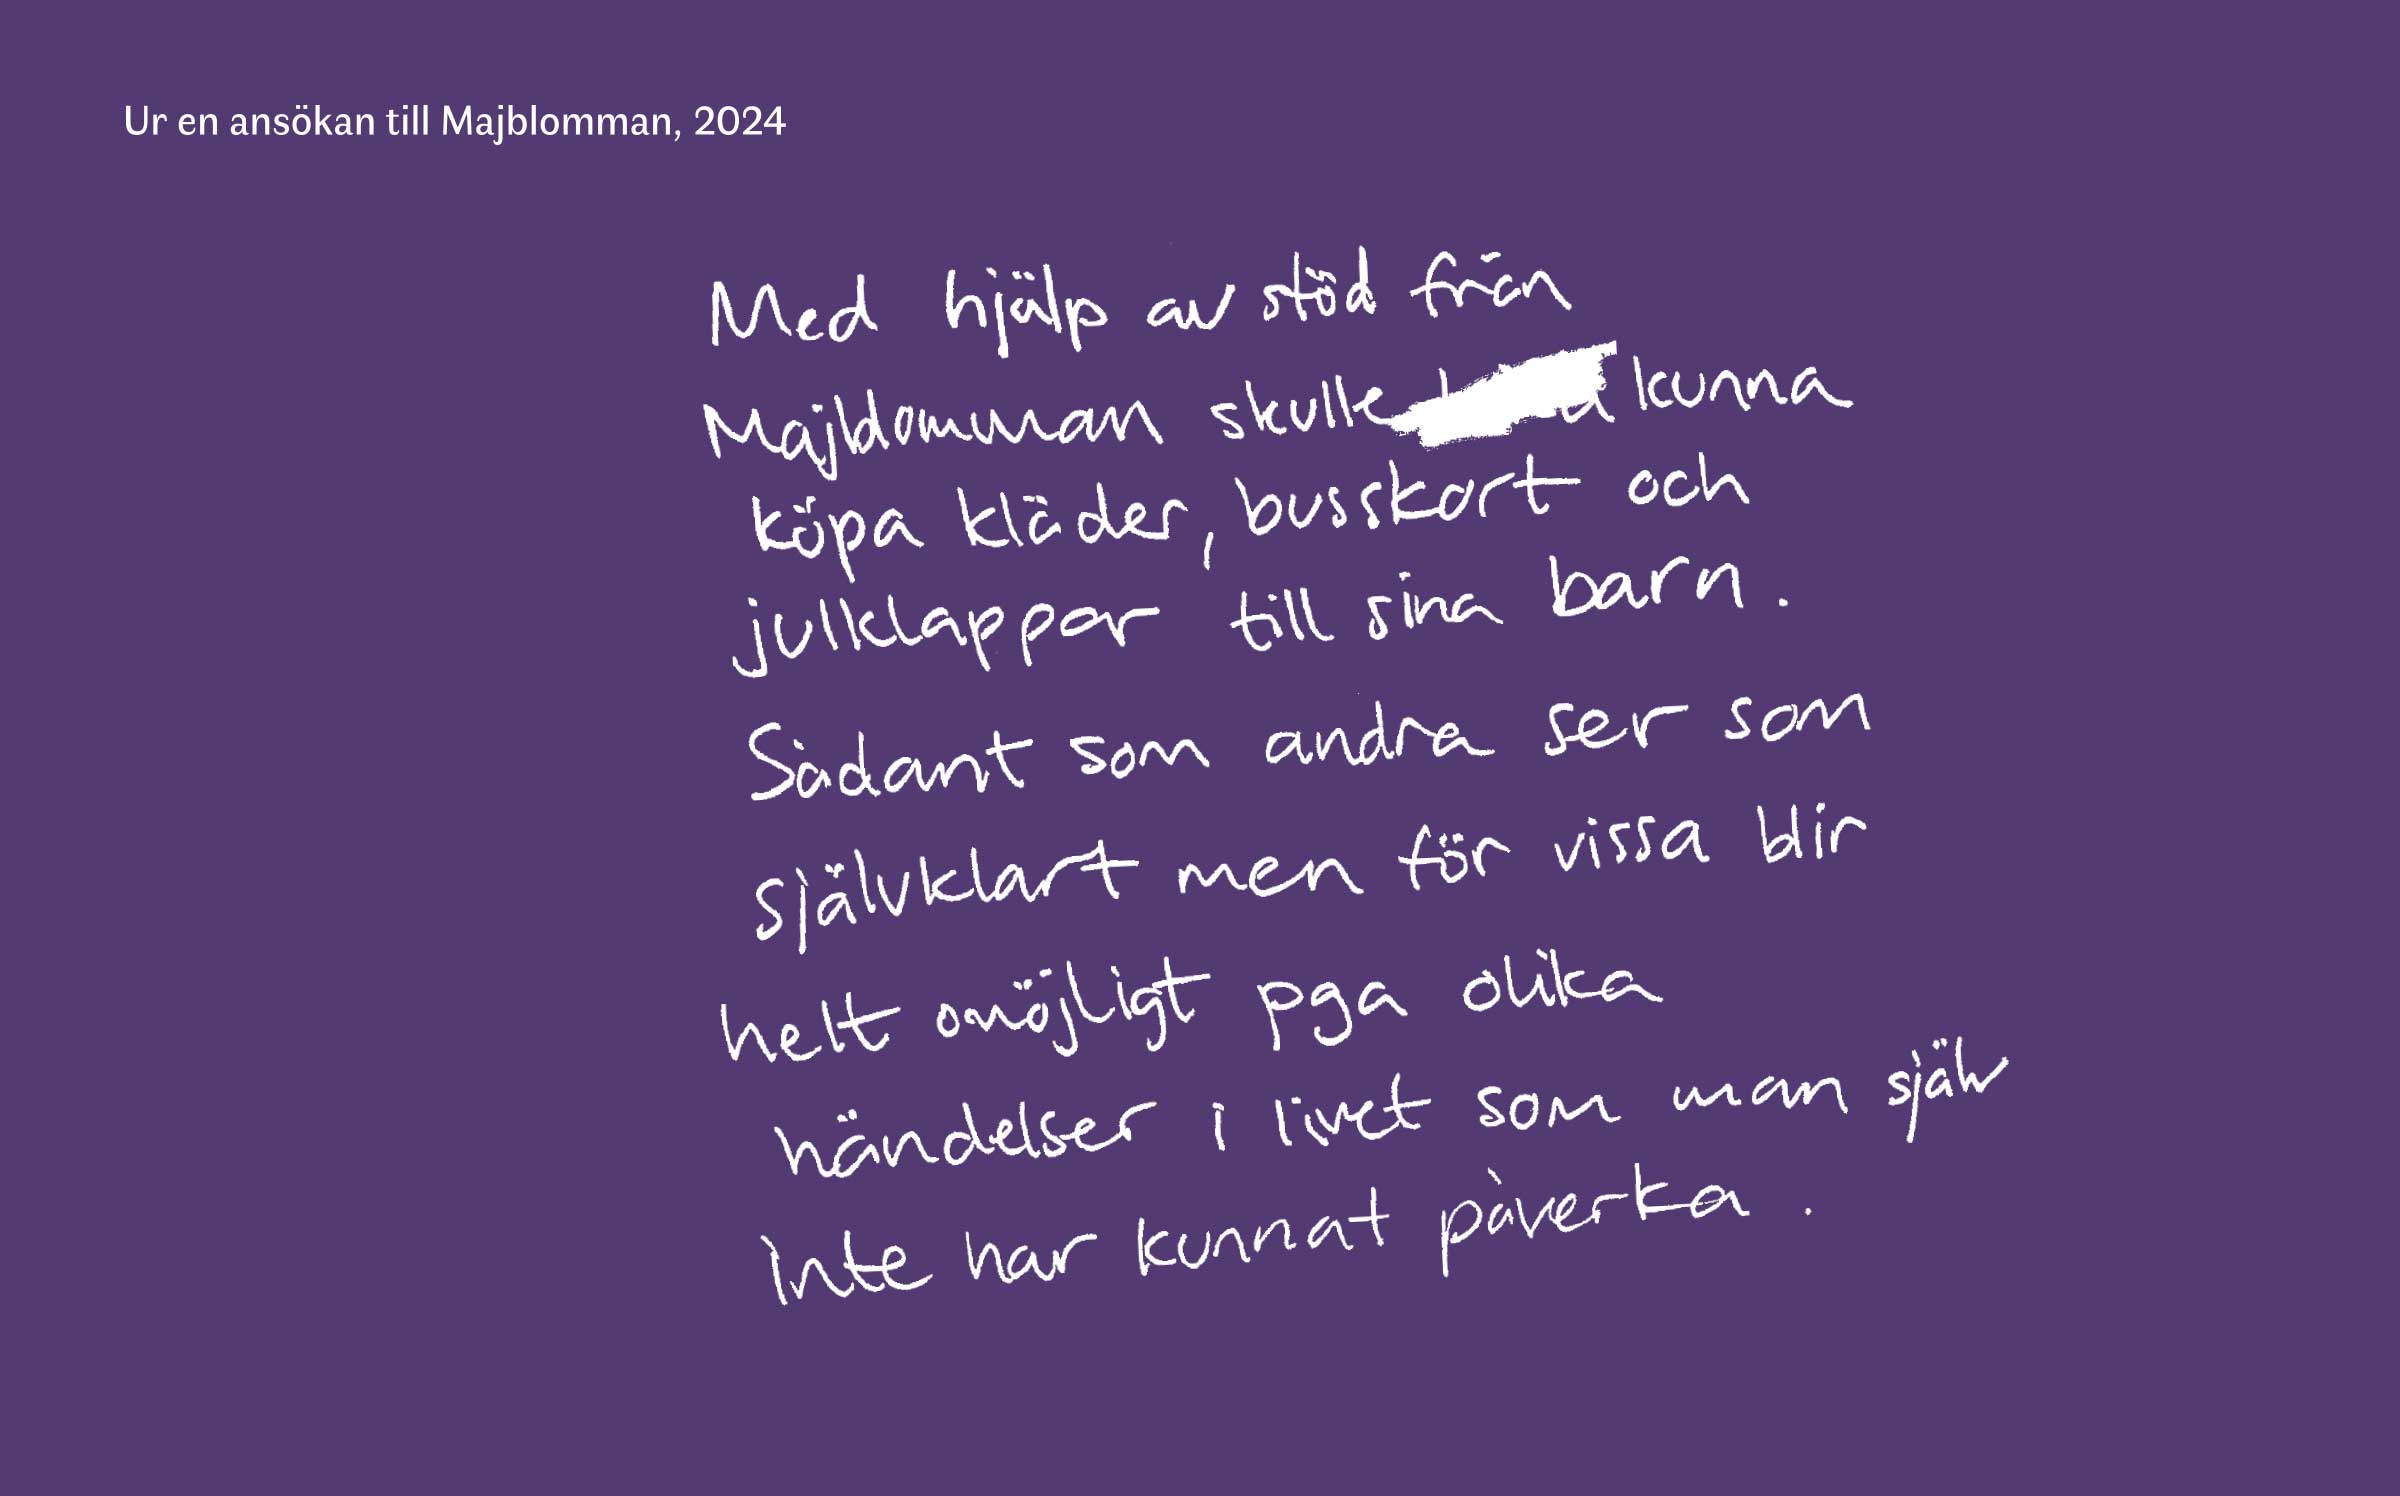 Ur en ansökan till Majblomman, 2024
Med hjälp av stöd från
Majblomman skulle kunna
köpa kläder, busskort och
julklappar till sina barn.
Sådant som andra ser som
självklart men för vissa blir
helt omöjligt pga olika
händelser i livet som man själv
inte har kunnat påverka.